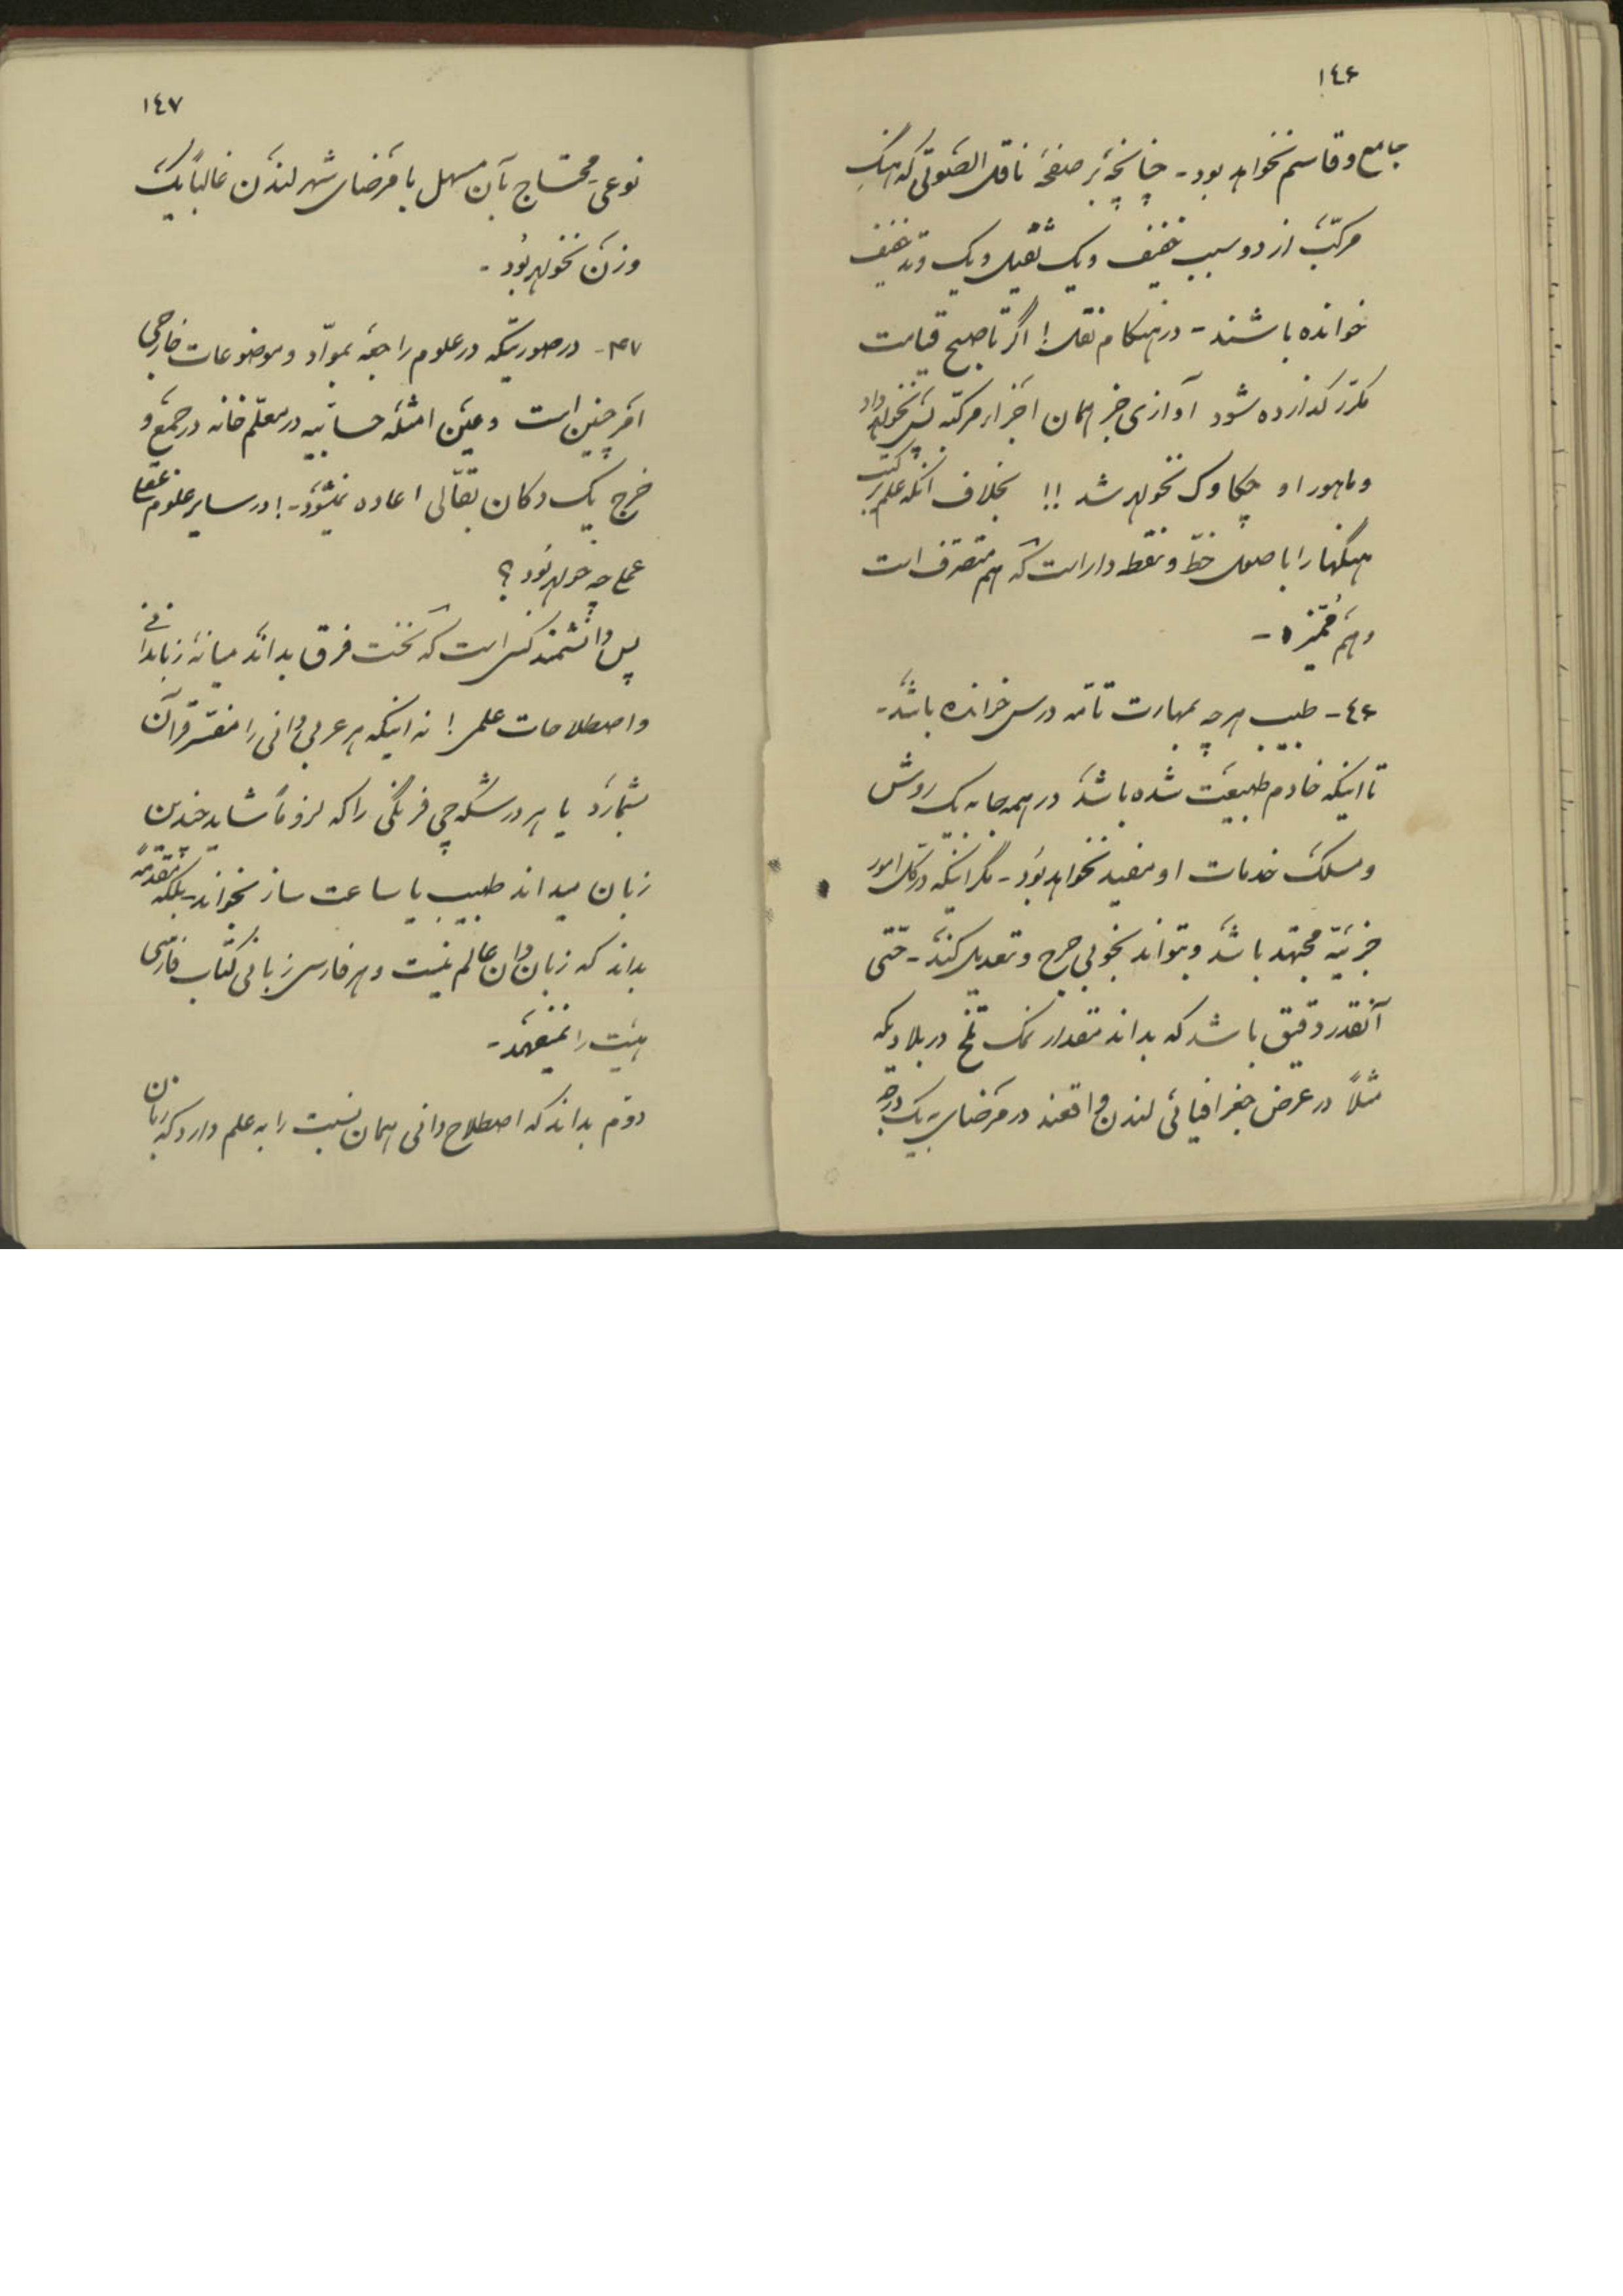 ١٤۶
جامع و قاسم نخواهد بود - چنانچه بر صفحهٔ ناقل الصّوتی که آهنگ
مرکّب از دو سبب خفیف و یک ثقیل و یک وتد خفیف
خوانده باشند - در هنگام نقل ! اگر تا صبح قیامت
مکرّر گذارده شود آوازی جز همان اجزاء مرکّبه پس نخواهد داد
و ماهور او چکاوک نخواهد شد !! بخلاف آنکه علم بر کتب
آهنگها را با اصول خطّ و نقطه داراست که هم متصرّف است
و هم ممیّزه -
٤۶ - طبیب هر چه بمهارت تامّه درس خوانده باشد -
تا اینکه خادم طبیعت شده باشد در همه جا به یک روش
و مسلک خدمات او مفید نخواهد بود - مگر اینکه در کل امور
جزئیّه مجتهد باشد و بتواند بخوبی جرح و تعدیل کند - حتّی
آنقدر دقیق باشد که بداند مقدار نمک تلخ در بلادیکه
مثلاً در عرض جغرافیائی لندن واقعند در مرضای به یک درجه
١٤٧
نوعی محتاج بآن مسهل با مرضای شهر لندن غالباً یک
وزن نخواهد بود -
۴۷ - در صورتیکه در علوم راجعه بموادّ و موضوعات خارجی
امر چنین است و عین امثله حسابیّه در معلّم خانه در جمع و
خرج یک دکان بقّالی اعاده نمیشود - ! در سایر علوم عقلی
عملی چه خواهد بود ؟
پس دانشمند کسی است که نخست فرق بداند میانهٔ زباندانی
و اصطلاحات علمی ! نه اینکه هر عربی دانی را مفسّر قرآن
بشمارد یا هر درشکه چی فرنگی را که لزوماً شاید چندین
زبان میداند طبیب یا ساعت ساز بخواند - بلکه مقدمةً
بداند که زبان دان عالم نیست و هر فارسی زبانی کتاب فارسی
هیئت را نمیفهمد -
دوّم بداند که اصطلاح دانی همان نسبت را به علم دارد که زبان